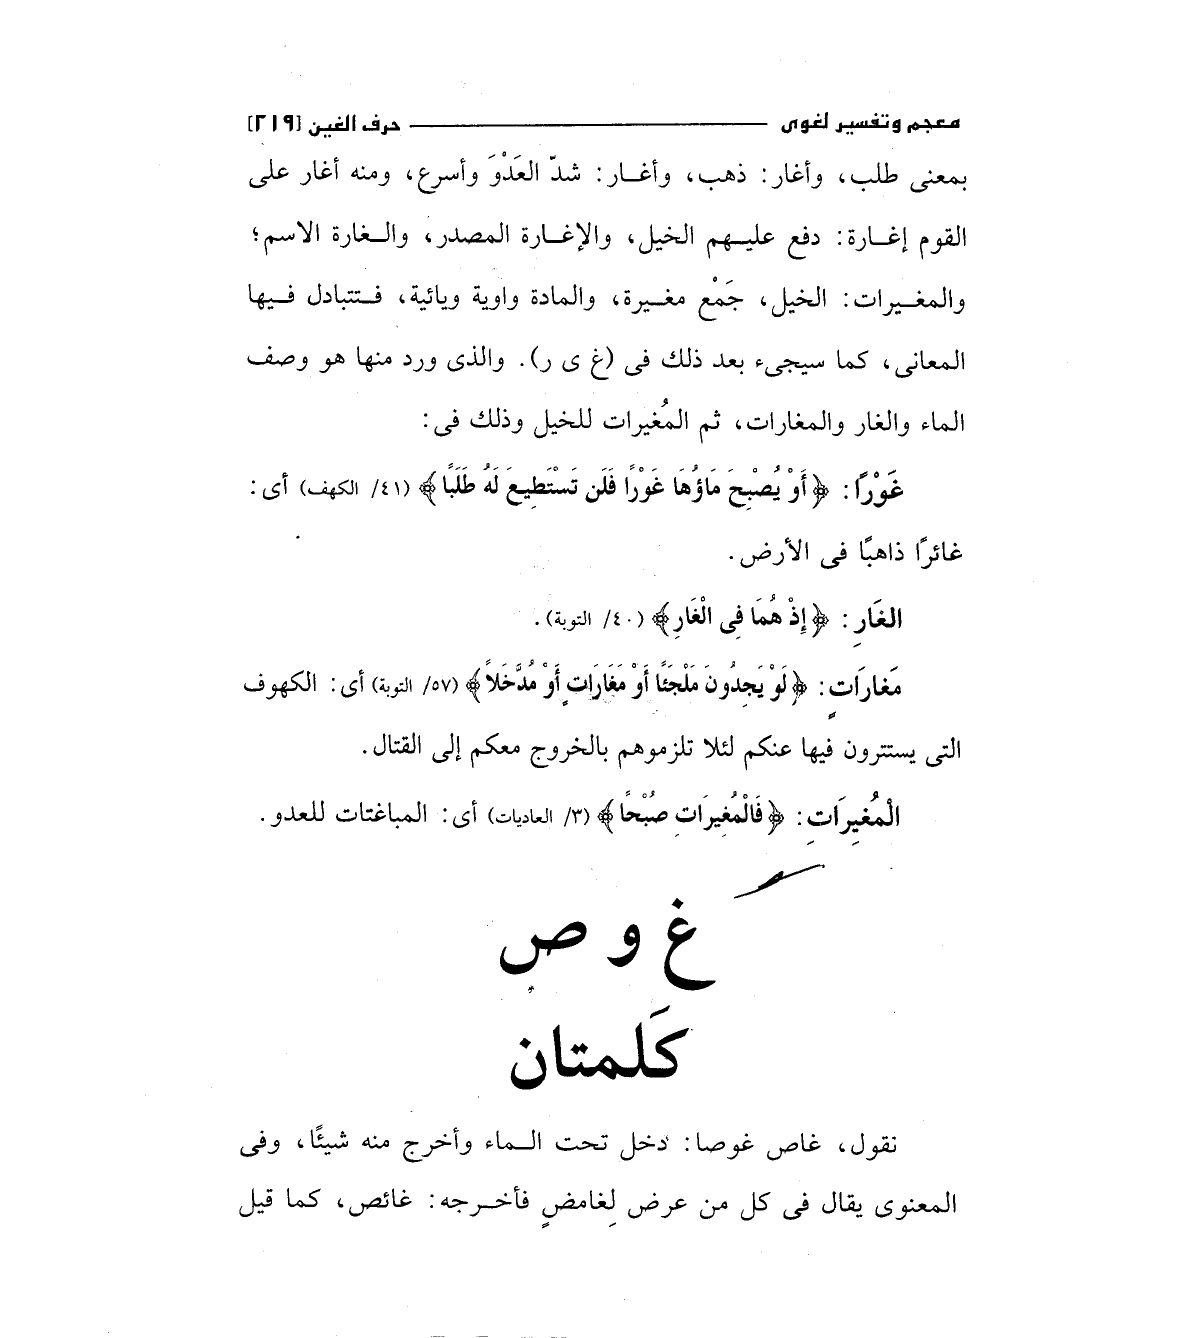 معجم وتفسير لغوى حرف الغين [٢١٩]
بمعنى طلب، وأغار: ذهب، وأغـار: شدّ العَدْوَ وأسرع، ومنه أغار على
القوم إغـارة: دفع عليـهم الخيل، والإغـارة المصدر، والـغارة الاسم؛
والمغـيرات: الخيل، جَمْع مغـيرة، والمادة واوية ويائية، فـتتبادل فـيها
المعانى، كما سيجىء بعد ذلك فى (غ ى ر). والذى ورد منها هو وصف
الماء والغار والمغارات، ثم المُغيرات للخيل وذلك فى:
غَوْرًا: ﴿أَوْ يُصْبِحَ مَاؤُهَا غَوْرًا فَلَن تَسْتَطِيعَ لَهُ طَلَبًا﴾ (٤١/ الكهف) أى:
غائرًا ذاهبًا فى الأرض.
الغَارِ: ﴿إِذْ هُمَا فِى الْغَارِ﴾ (٤٠/ التوبة).
مَغارَاتٍ: ﴿لَوْ يَجِدُونَ مَلْجَئًا أَوْ مَغَارَاتٍ أَوْ مُدَّخَلاً﴾ (٥٧/ التوبة) أى: الكهوف
التى يستترون فيها عنكم لئلا تلزموهم بالخروج معكم إلى القتال.
الْمُغيرَاتِ: ﴿فَالْمُغِيرَاتِ صُبْحًا﴾ (٣/ العاديات) أى: المباغتات للعدو.
غ و ص
كَلمتان
نقول، غاص غوصا: دخل تحت الـماء وأخرج منه شيئًا، وفى
المعنوى يقال فى كل من عرض لِغامضٍ فأخـرجه: غائص، كما قيل